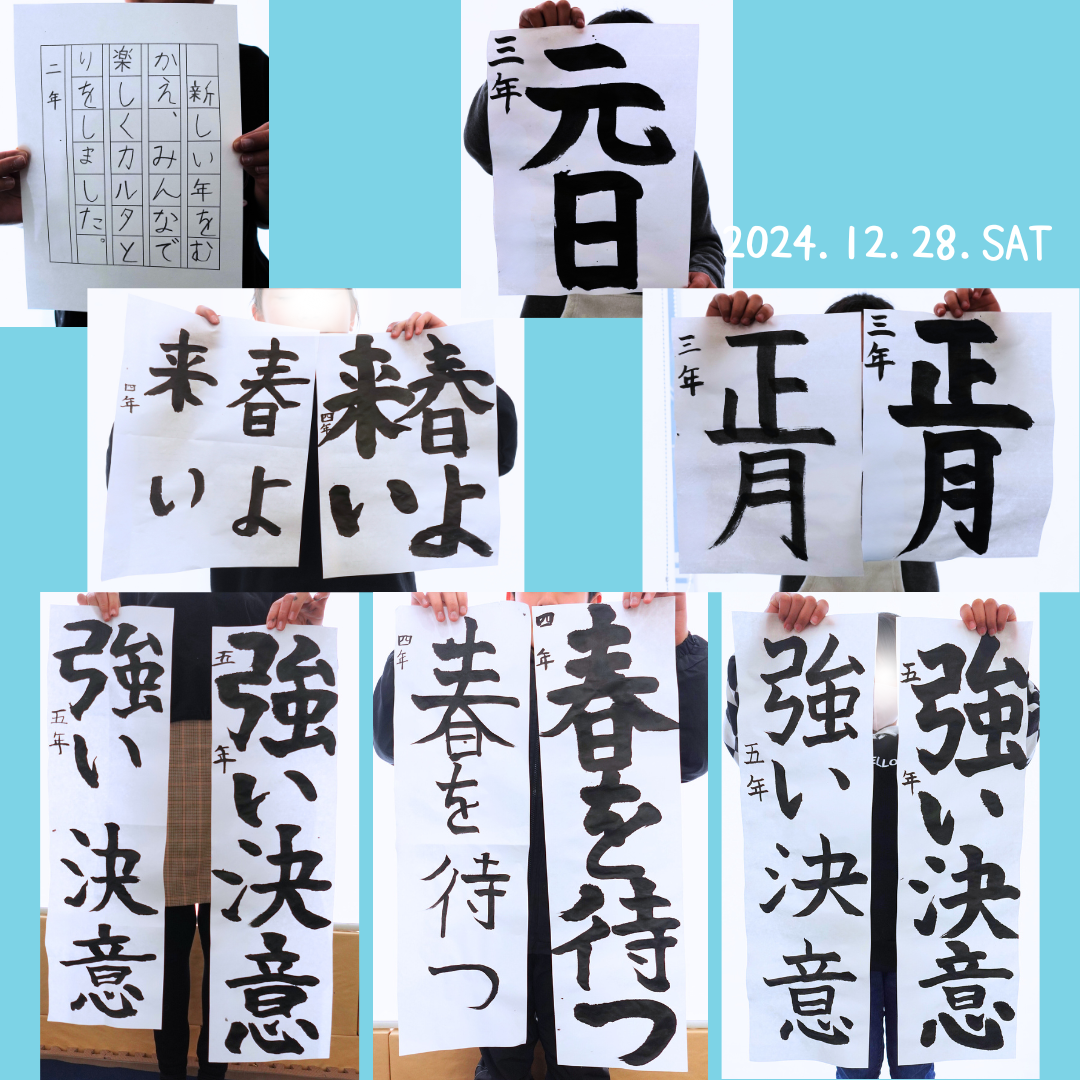 新しい年をむ
かえ、みんなで
楽しくカルタと
りをしました。
二年
元日
三年
2024. 12. 28. SAT
春よ
来い
四年
春よ
来い
四年
正月
三年
正月
三年
強い決意
五年
強い決意
五年
春を待つ
四年
春を待つ
四年
強い決意
五年
ELLO
強い決意
五年